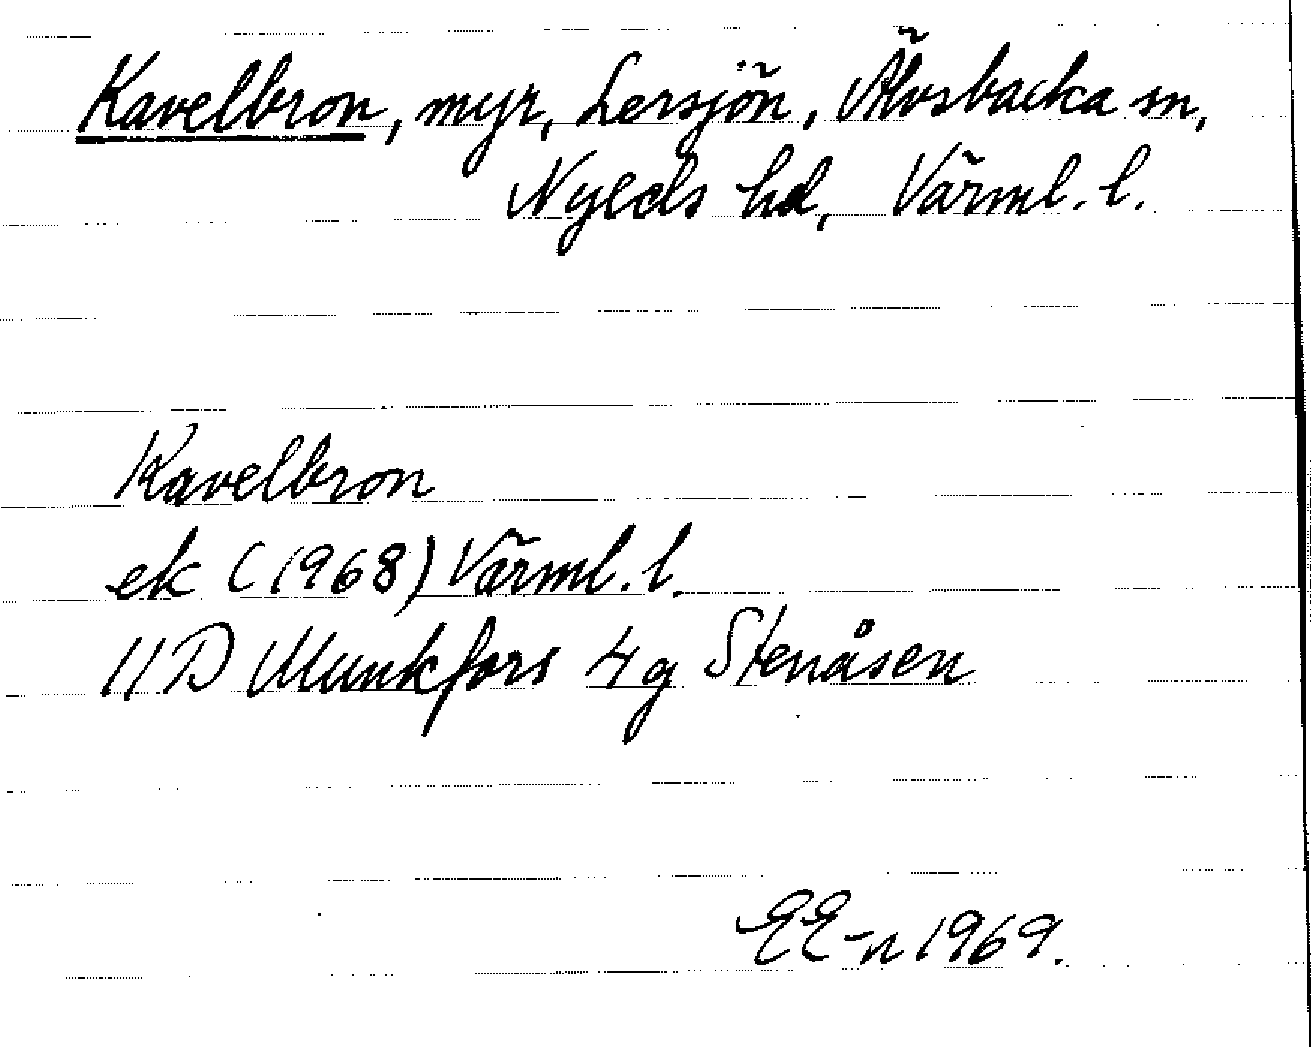 Kavelbron, myr, Lersjön, Älvsbacka sn,
Nyeds hd, Värml. l.
Kavelbron
ek (1968) Värml. l.
11D Munkfors 4g Stenåsen
EE-n 1969.